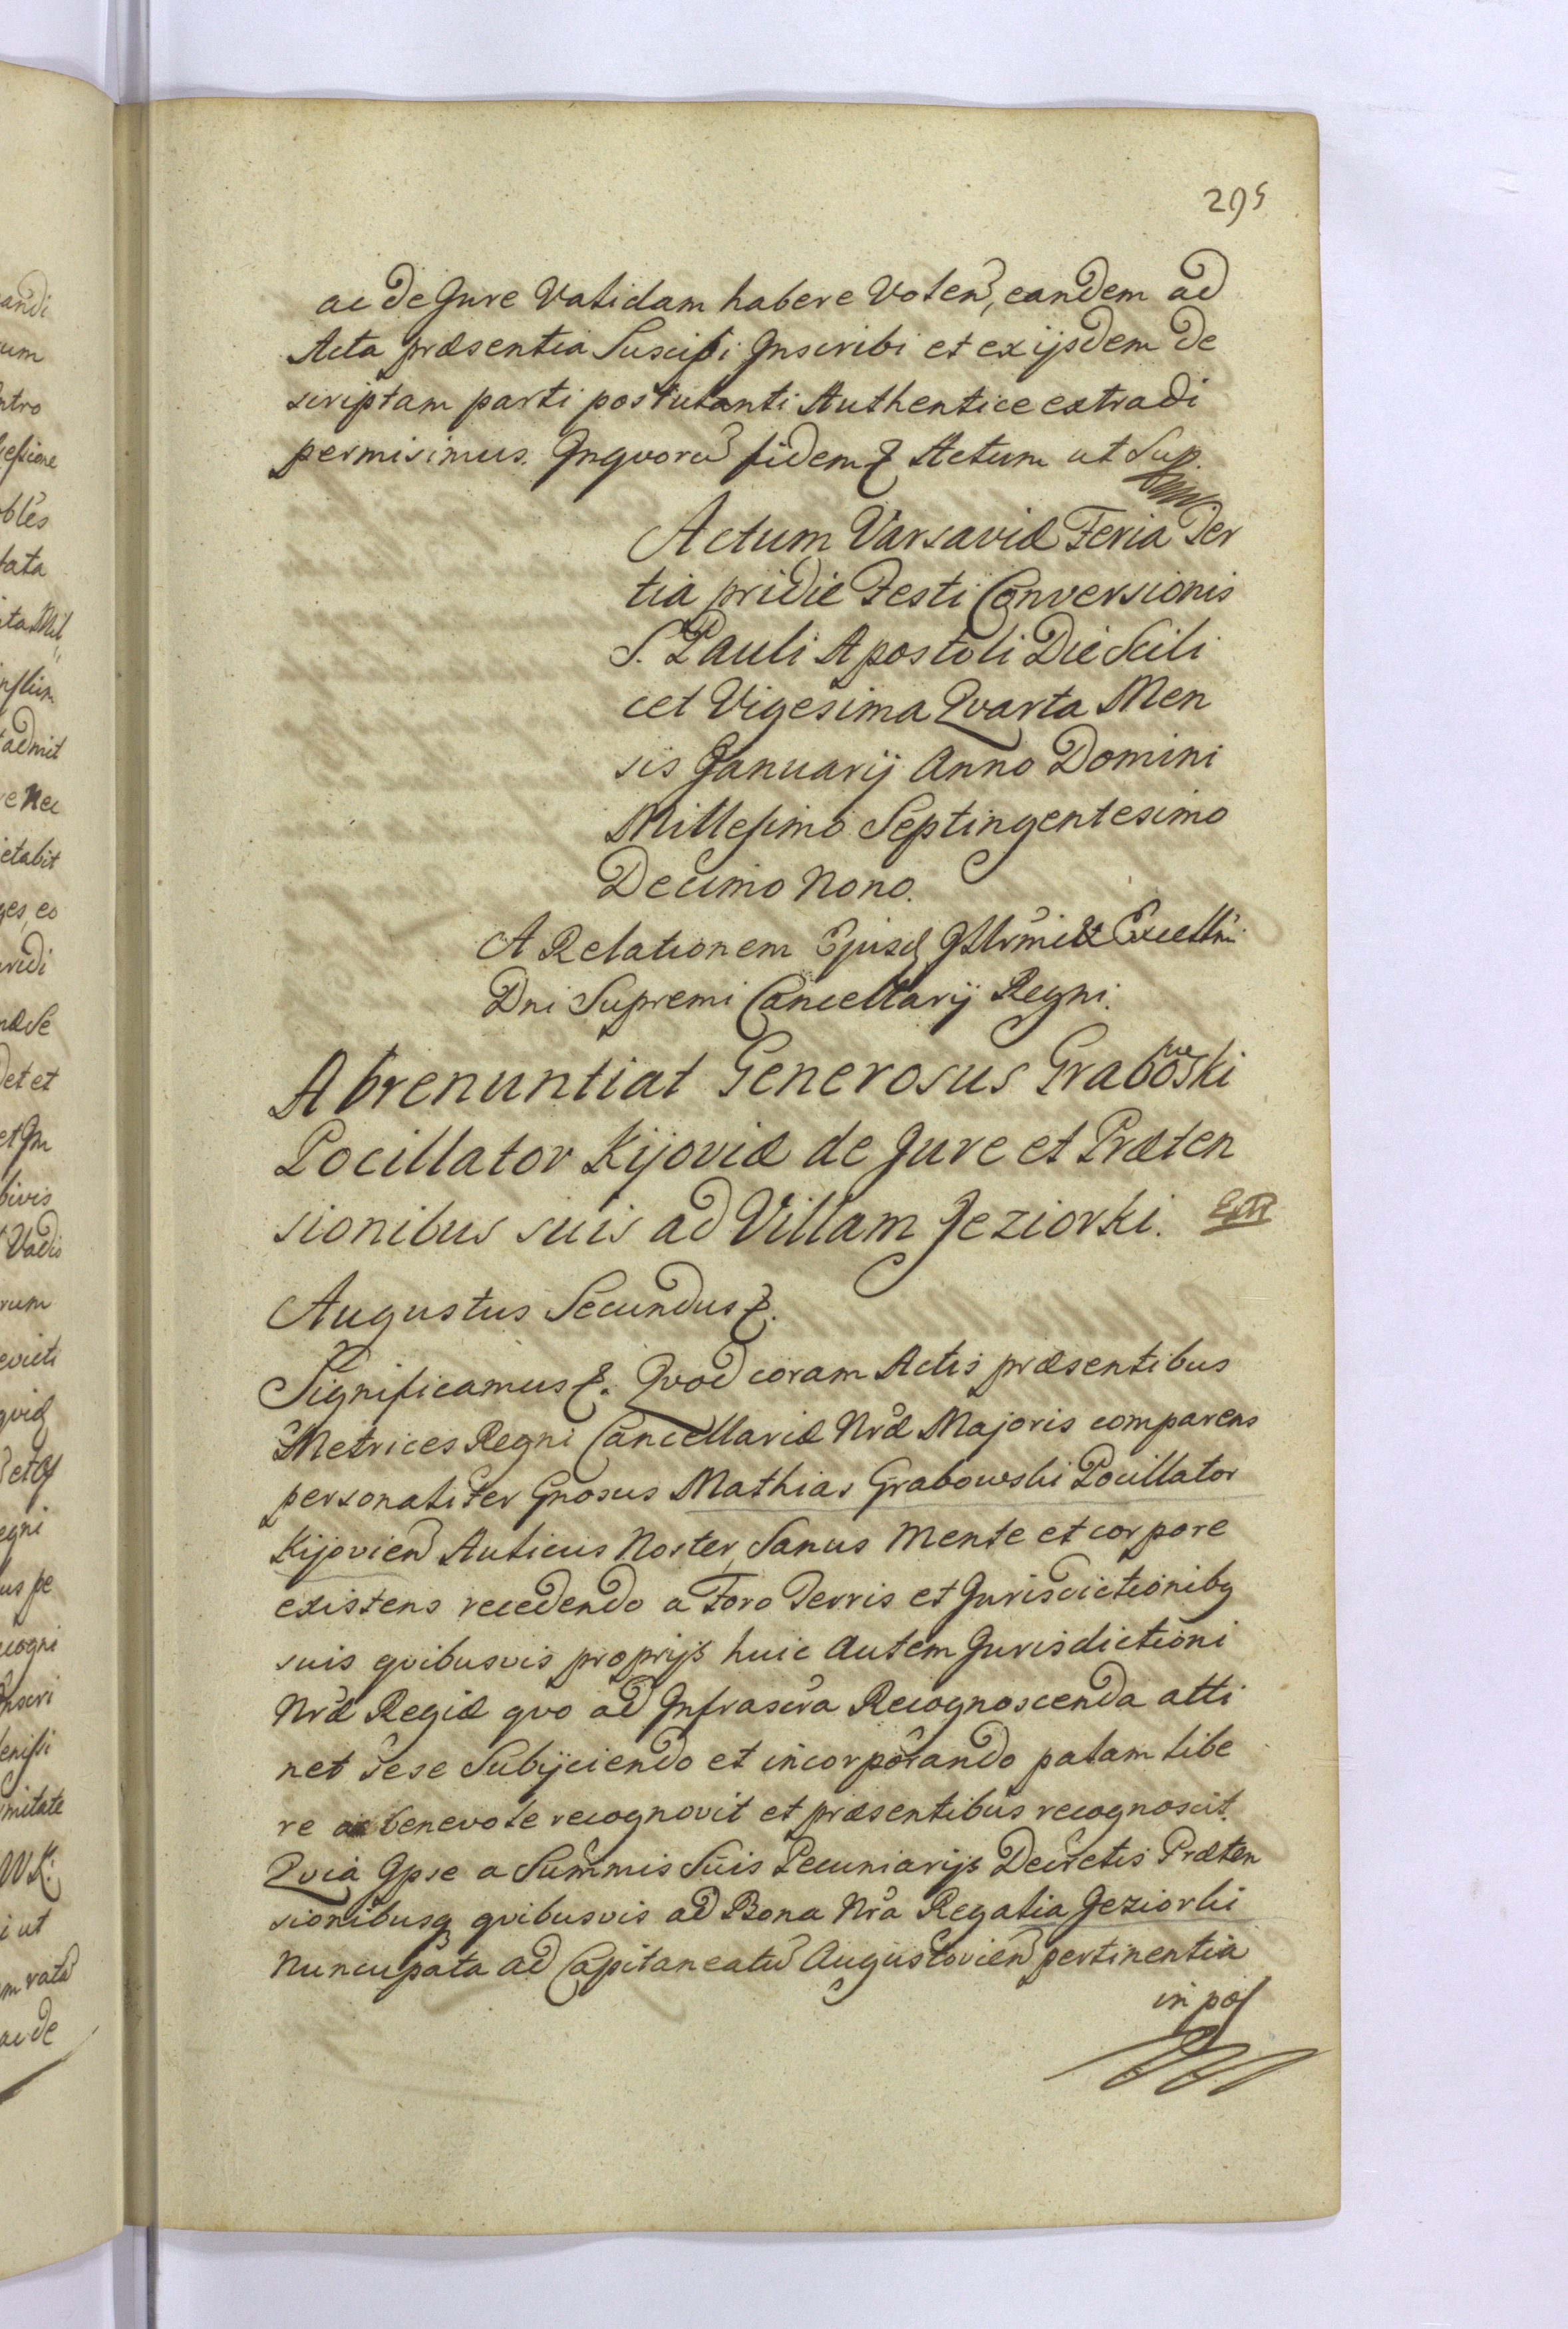 295
ac de Jure Validam habere Volen, eandem ad
Acta præsentia Suscipi Inscribi et ex ijsdem de
scriptam parti postulanti Authentice extradi
permisimus. Inquoru fidem & Actum ut Sup.
Actum Varsaviæ Feria Ter
tia pridie Festi Conversionis
S. Pauli Apostoli Die Scili
cet Vigesima Qvarta Men
sis Januarij Anno Domini
Millesimo Septingentesimo
Decimo Nono.
A Relationem Ejusd Illrmi & Excellmi
Dni Supremi Cancellarij Regni.
Abrenuntiat Generosus Grabowski
Pocillator Kijoviæ de Jure et Præten
sionibus suis ad Villam Jeziorki.
Augustus Secundus &.
Significamus &. Qvod coram Actis præsentibus
Metrices Regni Cancellariæ Nræ Majoris comparens
personaliter Gnosus Mathias Grabowski Pocillator
Kijovien Aulicus Noster, Sanus Mente et corpore
existens recedendo a Foro Terris et Jurisdictionibq
suis qvibusvis proprijs huic autem Jurisdictioni
Nræ Regiæ qvo ad Infrascra Recognoscenda atti
net sese Subijciendo et incorporando palam libe
re ac benevole recognovit et præsentibus recognoscit.
Qvia Ipse a Summis Suis Pecuniarijs Decretis Præten
sionibusq qvibusvis ad Bona Nra Regalia Jeziorki
Nuncupata ad Capitaneatu Augustovien pertinentia
in pos
andi
um
ntro
bles
tata
admit
e nec
etabit
ges, eo
det et
bivis
Vadio
rum
evicti
egni
cogni
mitate
i ut
ac de